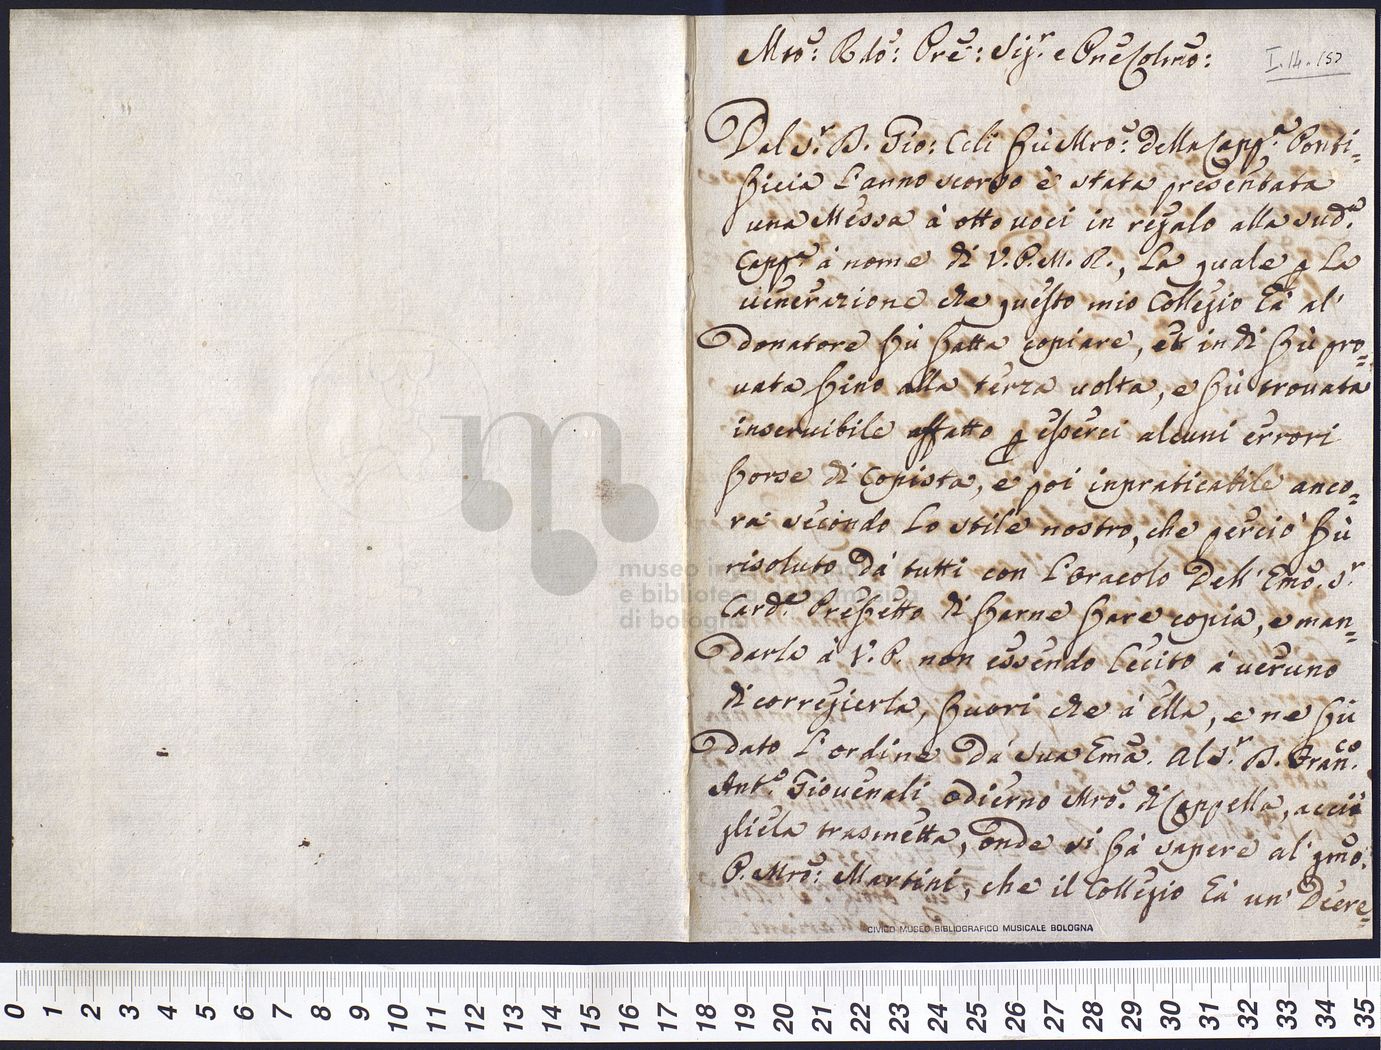 Mro: Rdo: Pre: Sigr. e Pne Colmo:
I.14.157
Dal Sr. D. Gio: Celi fù Mro: della Capp.a Ponti=
ficia l'anno scorso è stata presentata
una Messa à otto voci in regalo alla sud.a
Capp.a à nome di V.P.M.R., la quale p la
venerazione che questo mio Collegio hà al'
donatore fù fatta copiare, et indi fù pro=
vata fino alla terza volta, e fù trovata
inservibile affatto p esserci alcuni errori
forse di Copista, e poi inpraticabile anco=
ra secondo lo stile nostro, che perciò fù
risoluto dà tutti con l'Oracolo dell' Emo. Sr.
Card.e Prefetto di farne fare copia, e man=
darla à V.P. non essendo lecito à veruno
di corregierla, fuori che à ella, e ne fù
dato l'ordine dà sua Ema. al Sr. D. Franco.
Ant.o Giovenali odierno Mro. di Cappella, acciò
gliela trasmetta, onde si fà sapere al'
P. Mro: Martini, che il Collegio hà un' Decre=
museo internazionale
e biblioteca della musica
di bologna
CIVICO MUSEO BIBLIOGRAFICO MUSICALE BOLOGNA
0 1 2 3 4 5 6 7 8 9 10 11 12 13 14 15 16 17 18 19 20 21 22 23 24 25 26 27 28 29 30 31 32 33 34 35